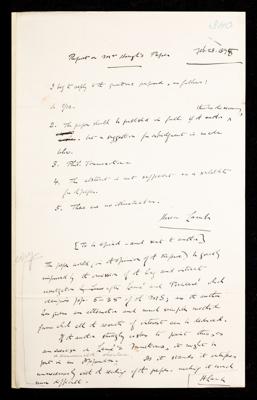 Report on Mr Hough's Paper
Feb 28. 1898
I beg to reply to the questions proposed, as follows:
1. Yes.
2. The paper should be published in full if the author
but a suggestion for abridgment is made
below.
3. Phil. Transactions
4. The abstract is not sufficient as a substitute
for the paper.
5. There are no illustrations.
Horace Lamb
[To be copied and sent to author]
The paper would (in the opinion of the Referee) be greatly
improved by the omission of the long and intricate
investigation by means of Lamé's functions, which
occupies pp. 5-35 of the MS, as the author
has given an alternative and much simpler method
from which all the results of interest can be deduced.
If the author strongly wishes to print
on Lamé's functions, it might be
put in an Appendix. As it stands it
unnecessarily with the reading of the paper, making it much
more difficult.
H Lamb